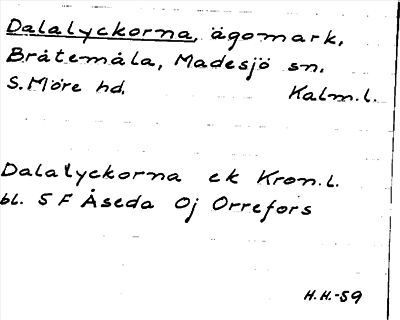 Dalalyckorna, ägomark,
Bråtemåla, Madesjö sn.
S. Möre hd. Kalm.l.
Dalalyckorna ek Kron.l.
bl. 5 F Åseda Oj Orrefors
H.H.-59